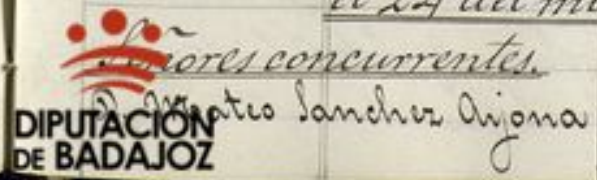 el 24 del
Señores concurrentes.
D. Mateo Sanchez Arjona
DIPUTACIÓN
DE BADAJOZ